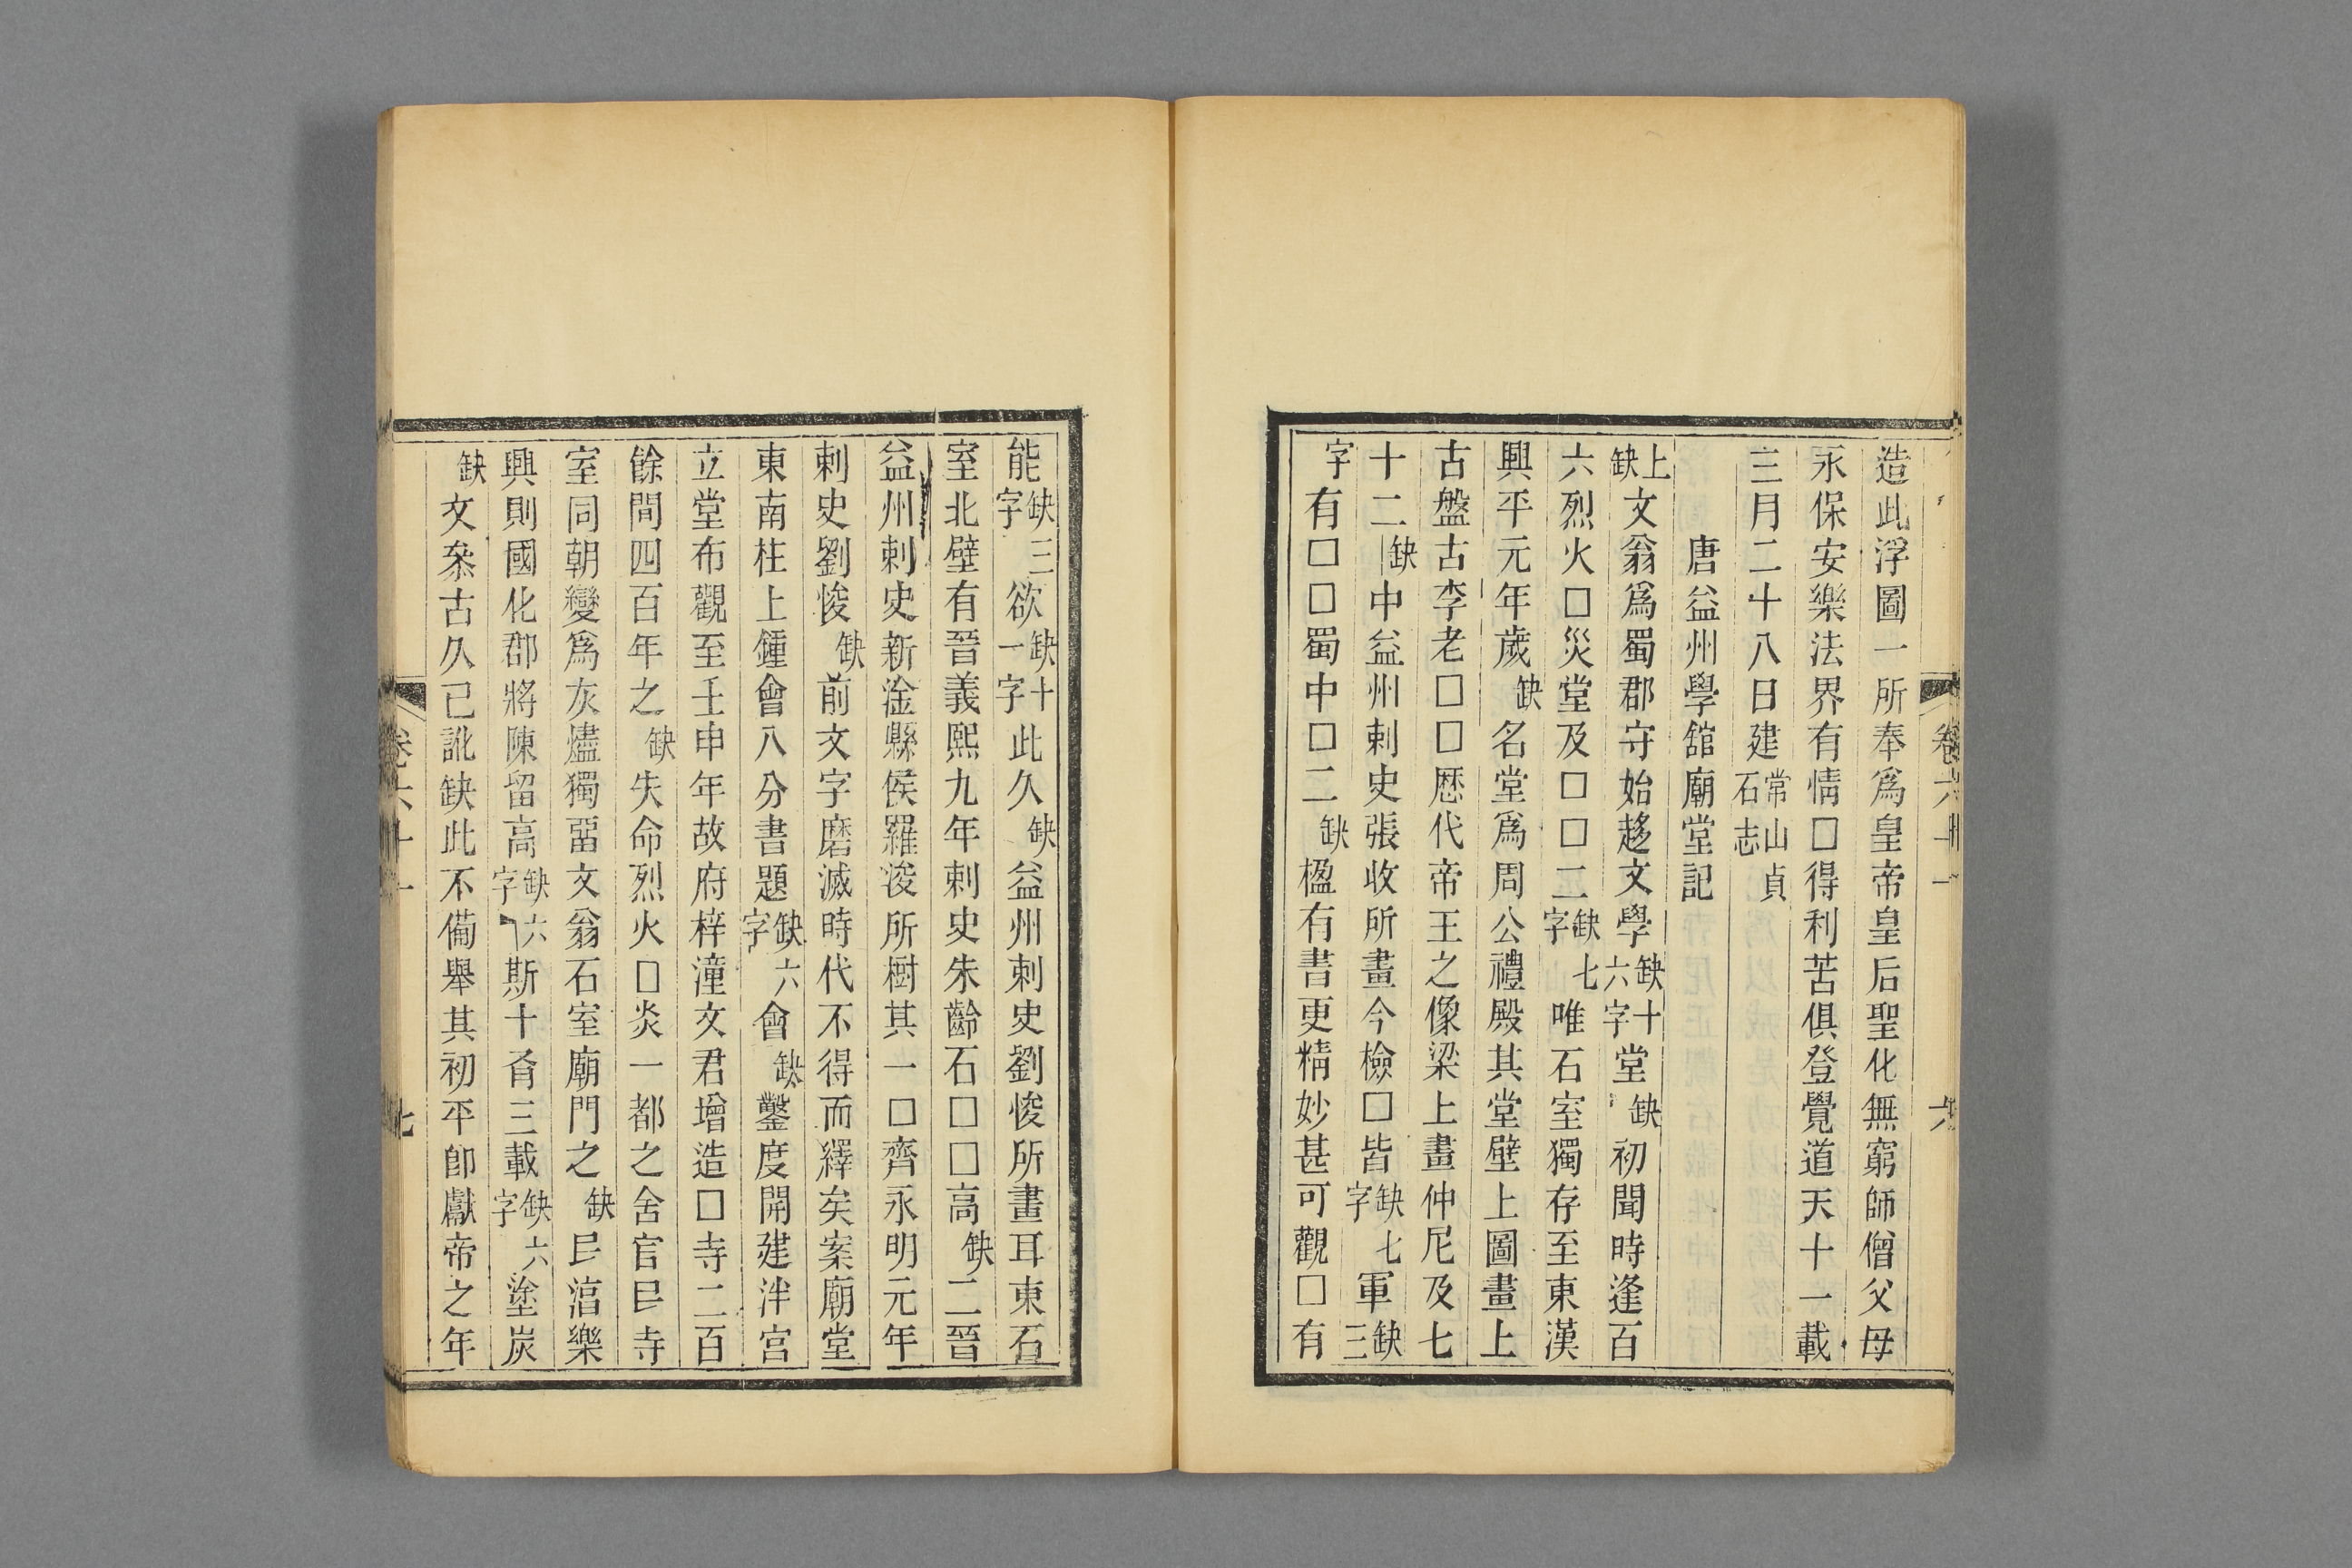 造此浮圖一所奉爲皇帝皇后聖化無窮師僧父母
永保安樂法界有情□得利苦俱登覺道天十一載
三月二十八日建常山貞石志
唐益州學舘廟堂記
上缺文翁爲蜀郡守始趍文學缺十六字堂缺初聞時逢百
六烈火□災堂及□□二缺七字唯石室獨存至東漢
興平元年歲缺名堂爲周公禮殿其堂壁上圖畫上
古盤古李老□□歴代帝王之像梁上畫仲尼及七
十二缺中益州刺史張收所畫今檢□皆缺七字軍缺三
字有□□蜀中□二缺楹有書更精妙甚可觀□有
卷六十一 六
能缺三字欲缺十一字此久缺益州刺史劉悛所畫耳東石
室北壁有晉義熙九年刺史朱齡石□□高缺二晉
益州刺史新淦縣侯羅浚所樹其一□齊永明元年
刺史劉悛缺前文字磨滅時代不得而繹矣案廟堂
東南柱上鍾會八分書題缺六字會缺鑿度開建泮宫
立堂布觀至壬申年故府梓潼文君增造□寺二百
餘間四百年之缺失命烈火□炎一都之舍官民寺
室同朝變爲灰燼獨畱文翁石室廟門之缺民滔樂
興則國化郡將陳留高缺六字斯十有三載缺六字塗炭
缺文叅古久已訛缺此不備舉其初平卽獻帝之年
卷六十一 七